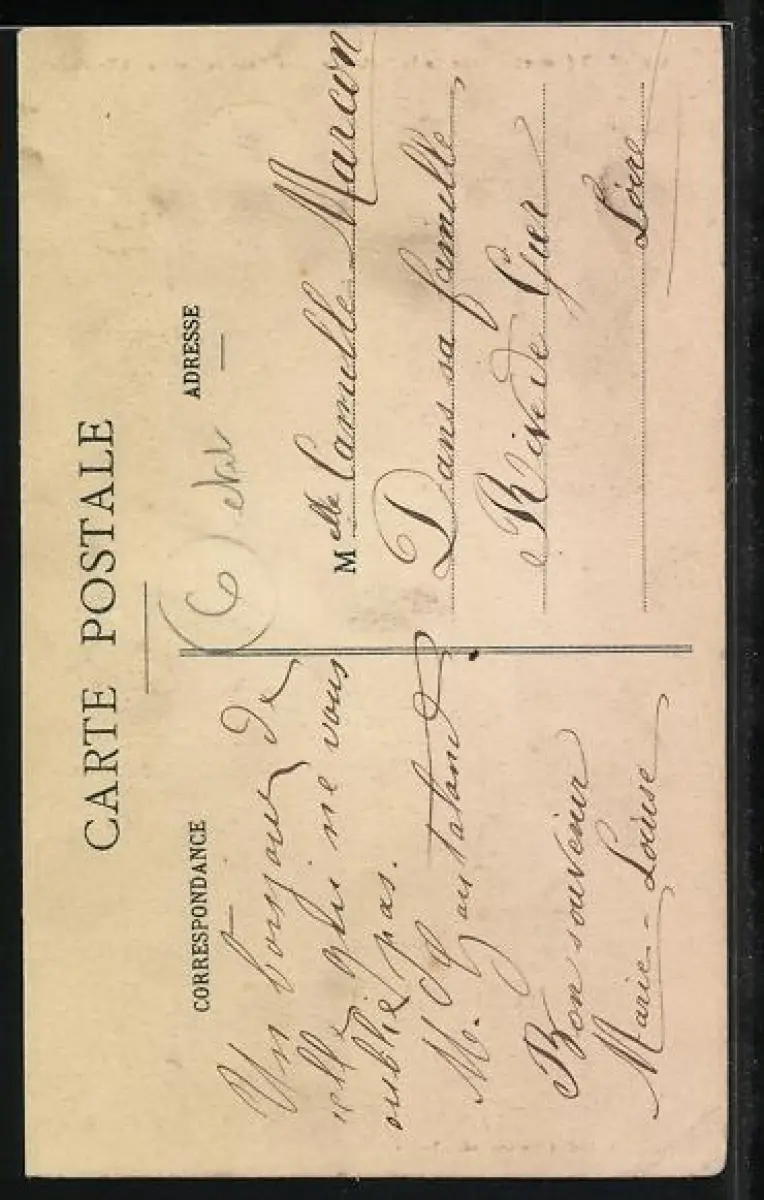 CARTE POSTALE
CORRESPONDANCE
Un bonjour de
celle qui ne vous
oublie pas.
M. L.
Bon souvenir
Marie-Louise
(6)
ADRESSE
Melle Camille Marcon
Dans sa famille
Rive de Gier
Loire